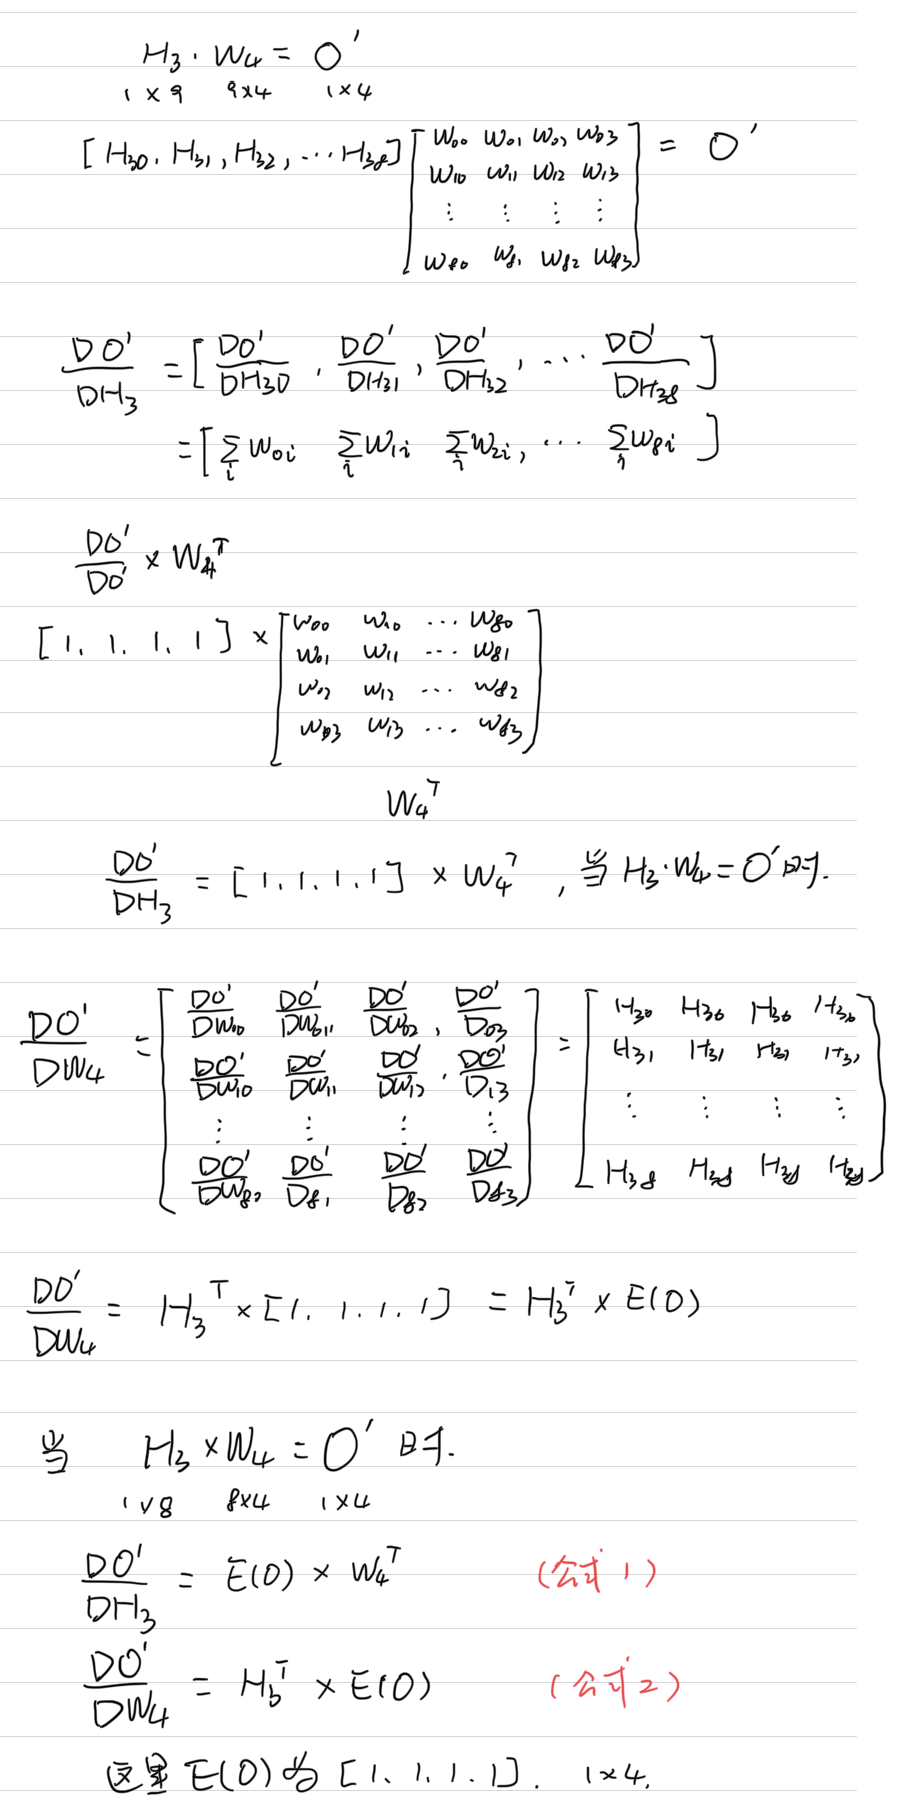 H₃ · W₄ = O′
1×9 9×4 1×4
[H₃₀, H₃₁, H₃₂, ⋯ H₃₈] [W₀₀ W₀₁ W₀₂ W₀₃ = O′
W₁₀ W₁₁ W₁₂ W₁₃
⋮ ⋮ ⋮ ⋮
W₈₀ W₈₁ W₈₂ W₈₃]
DO′/DH₃ = [DO′/DH₃₀, DO′/DH₃₁, DO′/DH₃₂, ⋯ DO′/DH₃₈]
= [∑ᵢ W₀ᵢ ∑ᵢ W₁ᵢ ∑ᵢ W₂ᵢ, ⋯ ∑ᵢ W₈ᵢ]
DO′/DO′ × W₄ᵀ
[1, 1, 1, 1] × [W₀₀ W₁₀ ⋯ W₈₀
W₀₁ W₁₁ ⋯ W₈₁
W₀₂ W₁₂ ⋯ W₈₂
W₀₃ W₁₃ ⋯ W₈₃]
W₄ᵀ
DO′/DH₃ = [1, 1, 1, 1] × W₄ᵀ, 当 H₃·W₄ = O′ 时.
DO′/DW₄ = [DO′/DW₀₀ DO′/DW₀₁ DO′/DW₀₂, DO′/D₀₃ = [H₃₀ H₃₀ H₃₀ H₃₀
DO′/DW₁₀ DO′/DW₁₁ DO′/DW₁₂, DO′/D₁₃ H₃₁ H₃₁ H₃₁ H₃₁
⋮ ⋮ ⋮ ⋮ ⋮ ⋮ ⋮ ⋮
DO′/DW₈₀ DO′/D₈₁ DO′/D₈₂ DO′/D₈₃] H₃₈ H₃₈ H₃₈ H₃₈]
DO′/DW₄ = H₃ᵀ × [1, 1, 1, 1] = H₃ᵀ × E(O)
当 H₃ × W₄ = O′ 时.
1×8 8×4 1×4
DO′/DH₃ = E(O) × W₄ᵀ (公式1)
DO′/DW₄ = H₃ᵀ × E(O) (公式2)
这里 E(O) 为 [1, 1, 1, 1]. 1×4.